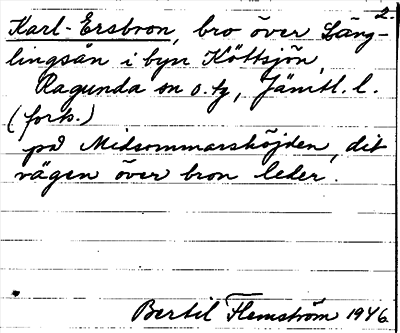 2.
Karl-Ersbron, bro över Läng-
lingsån i byn Köttsjön,
Ragunda sn o. tg, Jämtl. l.
(forts.)
på Midsommarshöjden, dit
vägen över bron leder.
Bertil Flemström 1946.